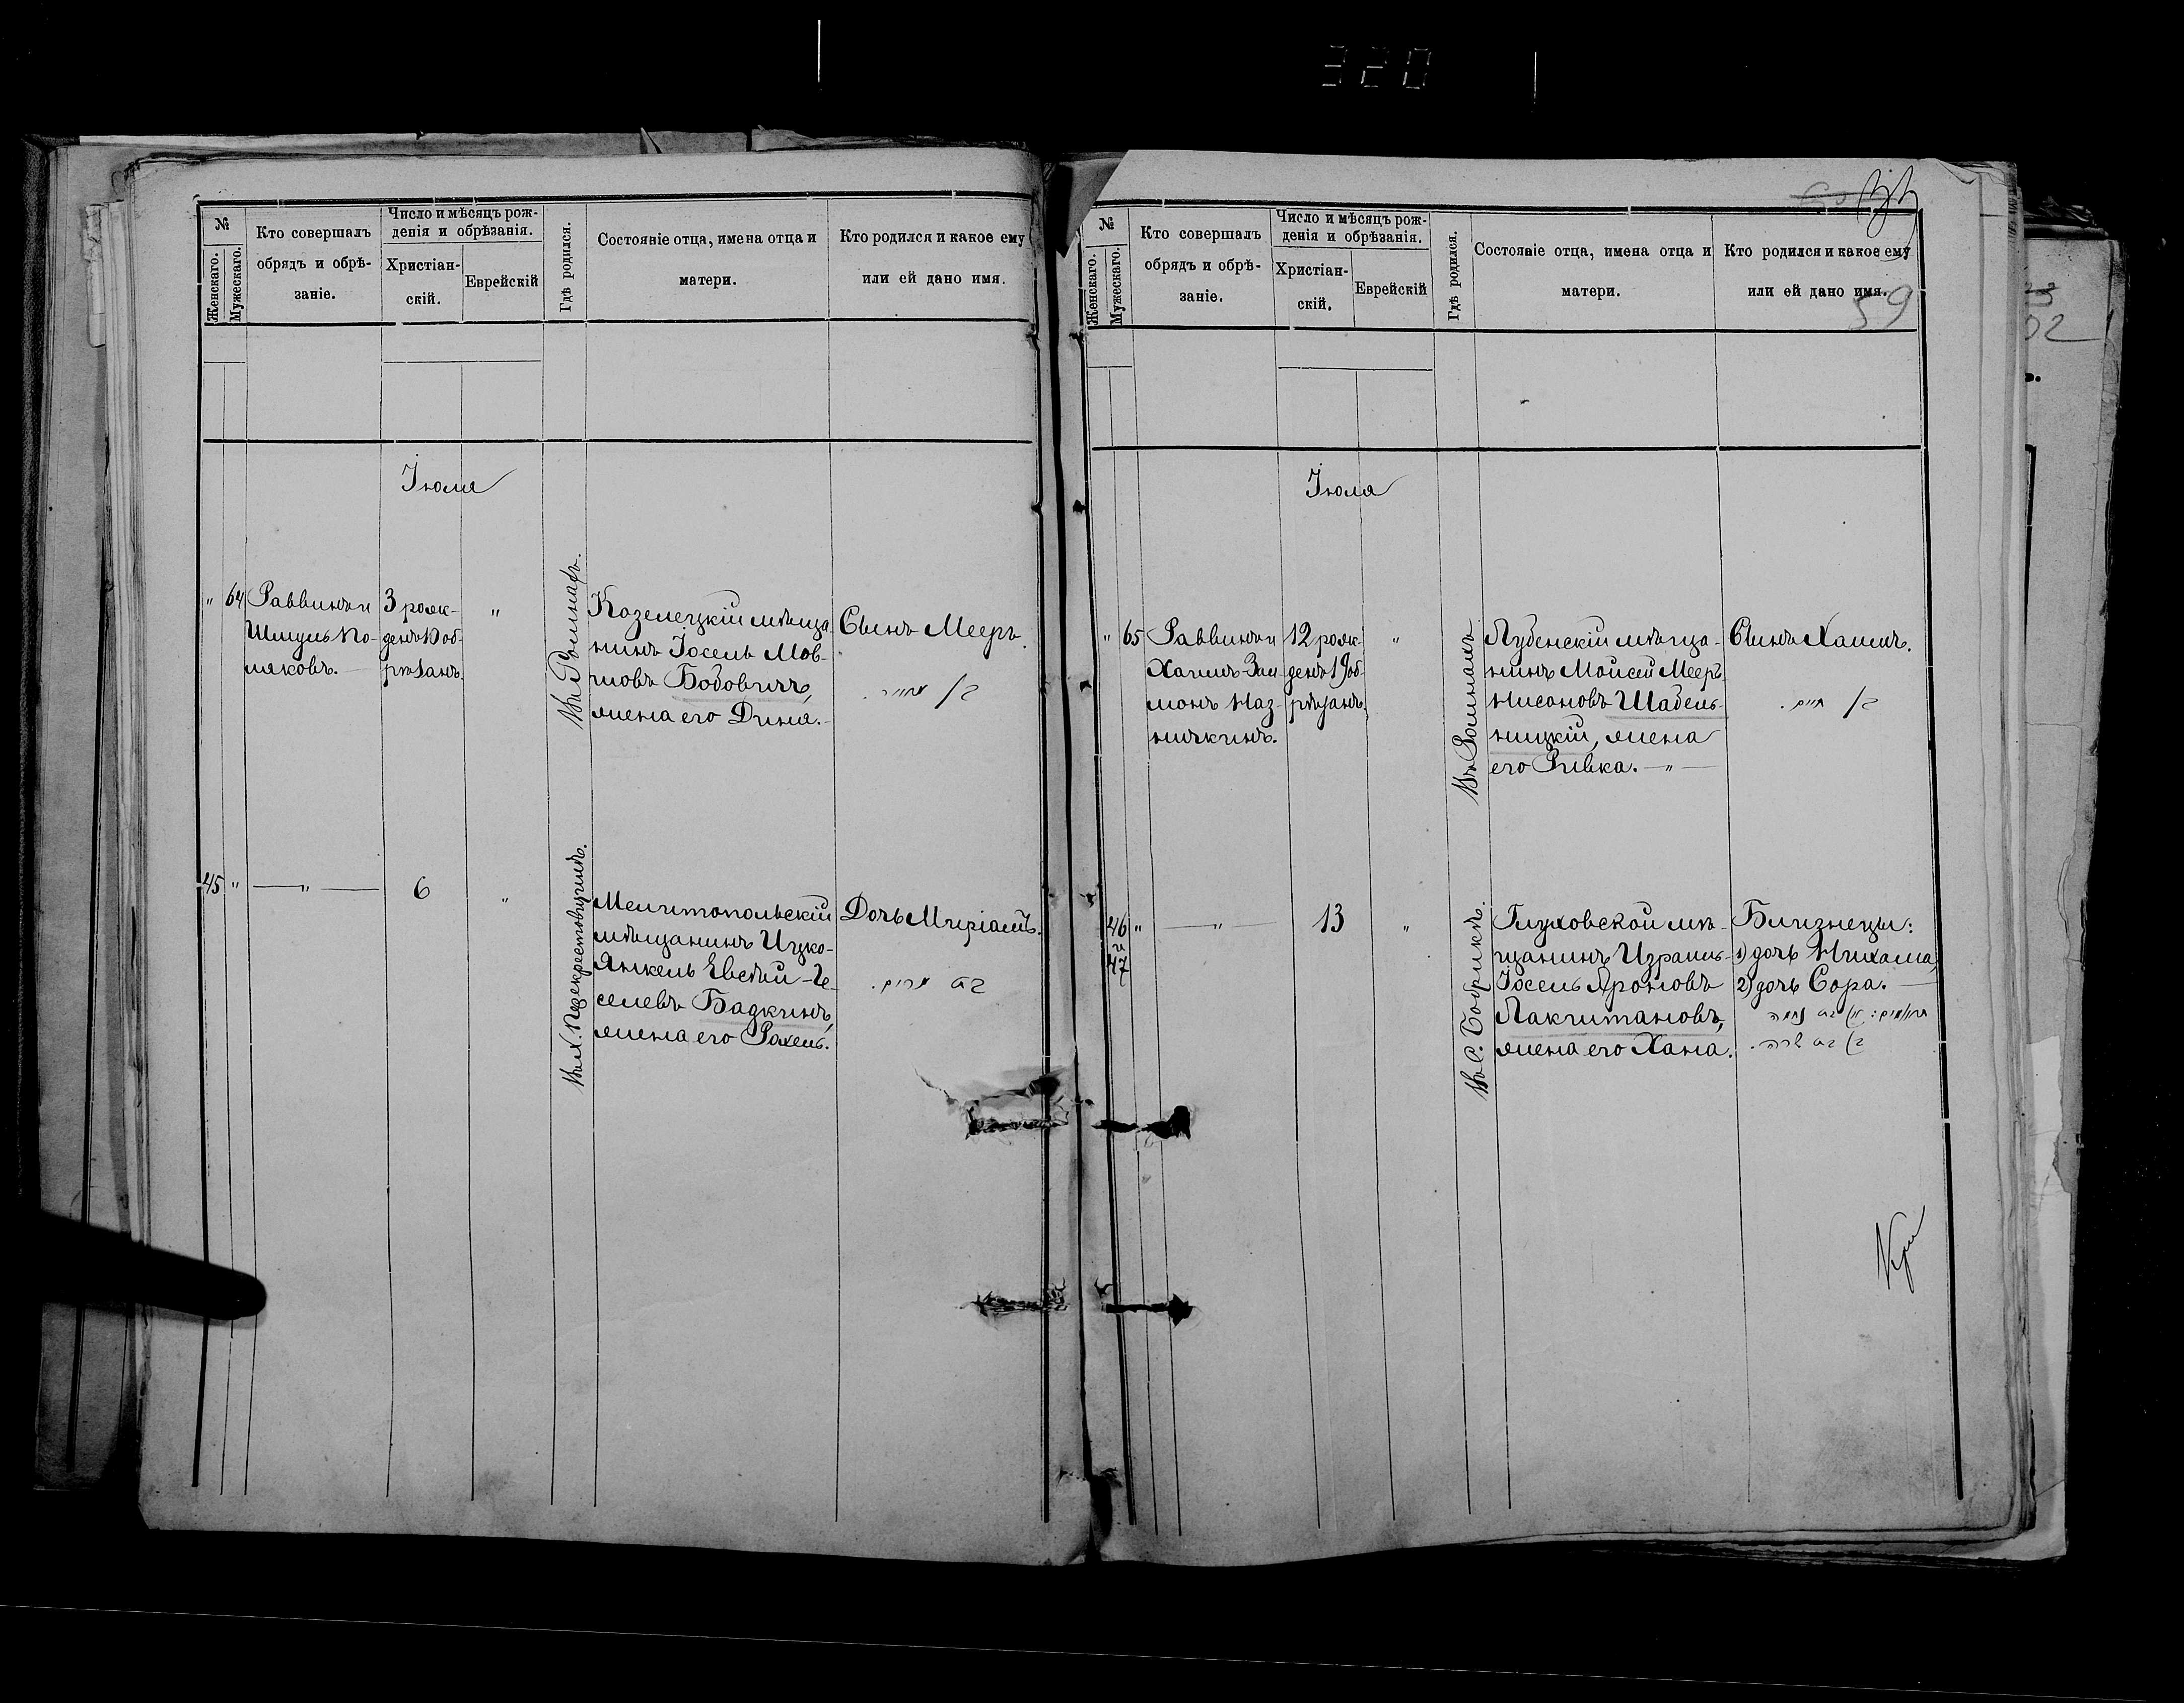 320
№
Женскаго.
Мужескаго.
Кто совершалъ
обрядъ и обрѣ-
заніе.
Число и мѣсяцъ рож-
денія и обрѣзанія.
Христіан-
скій.
Еврейскій
Гдѣ родился.
Состояніе отца, имена отца и
матери.
Кто родился и какое ему
или ей дано имя.
Іюля
" 64
Раввинъ и
Шмуль По-
ляковъ. —
3 рож-
денъ 10 об-
рѣзанъ.
"
Въ г. Ромнахъ.
Козелецкій мѣща-
нинъ Іосель Мов-
шовъ Бобовичъ,
жена его Дина. -
Сынъ Мееръ.
מאיר.
45 "
— " —
6
"
Мелитопольскій
мѣщанинъ Ицко-
Янкель Евсѣй-Ге-
селевъ Бадкинъ,
жена его Рохель.
Дочь Миріамъ.
בת מרים.
59
№
Женскаго.
Мужескаго.
Кто совершалъ
обрядъ и обрѣ-
заніе.
Число и мѣсяцъ рож-
денія и обрѣзанія.
Христіан-
скій.
Еврейскій
Гдѣ родился.
Состояніе отца, имена отца и
матери.
Кто родился и какое ему
или ей дано имя.
Іюля
" 65
Раввинъ и
Хаимъ-Зал-
монъ Наз-
12 рож-
денъ 19 об-
рѣзанъ.
"
Въ Ромнахъ
Лубенскій мѣща-
нинъ Мойсей Мееръ
Нисоновъ Шабель-
ницкій, жена
его Ривка. — " —
Сынъ Хаимъ.
חיים.
46 "
и
47
— " —
13
"
Въ с. Бобрикѣ.
Глуховской мѣ-
щанинъ Израиль-
Іосель Ароновъ
Лакшитановъ,
жена его Хана.
Близнецы:
1) дочь Нихама,
2) дочь Сора. —
תאומים: א) בת נחמה
ב) בת שרה.